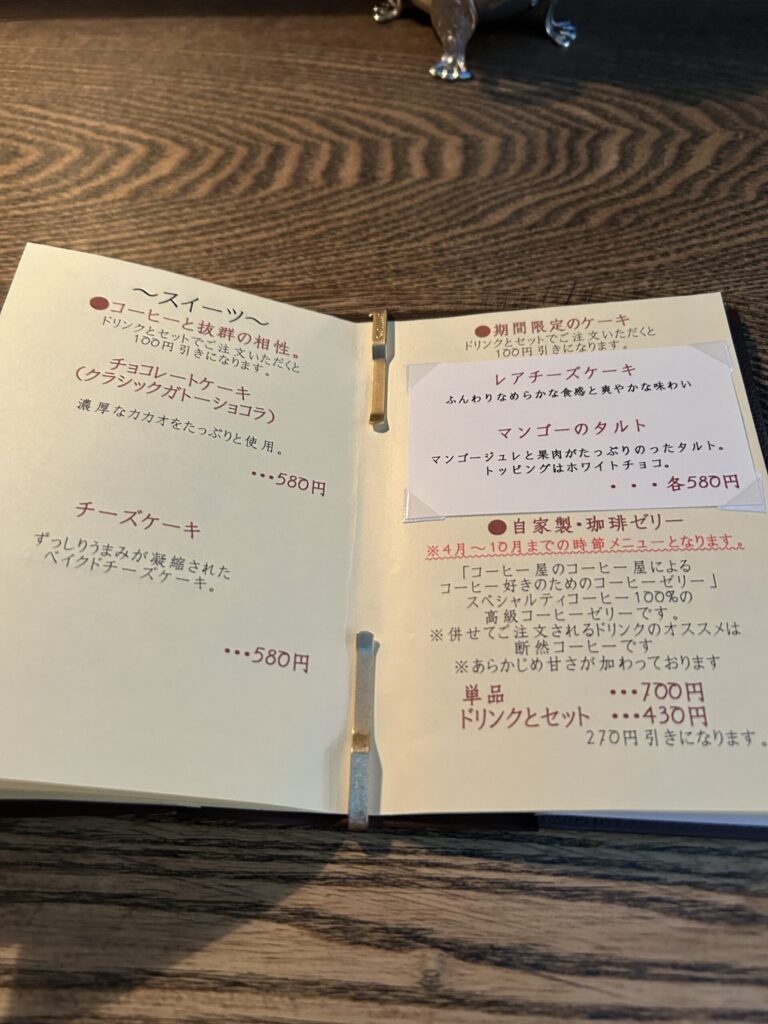 ～スイーツ～
●コーヒーと抜群の相性。
ドリンクとセットでご注文いただくと
100円引きになります。
チョコレートケーキ
(クラシックガトーショコラ)
濃厚なカカオをたっぷりと使用。
･･･580円
チーズケーキ
ずっしりうまみが凝縮された
ベイクドチーズケーキ。
･･･580円
●期間限定のケーキ
ドリンクとセットでご注文いただくと
100円引きになります。
レアチーズケーキ
ふんわりなめらかな食感と爽やかな味わい
マンゴーのタルト
マンゴージュレと果肉がたっぷりのったタルト。
トッピングはホワイトチョコ。
・・・各580円
●自家製・珈琲ゼリー
※4月～10月までの時節メニューとなります。
「コーヒー屋のコーヒー屋による
コーヒー好きのためのコーヒーゼリー」
スペシャルティコーヒー100%の
高級コーヒーゼリーです。
※併せてご注文されるドリンクのオススメは
断然コーヒーです
※あらかじめ甘さが加わっております
単品 ･･･700円
ドリンクとセット ･･･430円
270円引きになります。